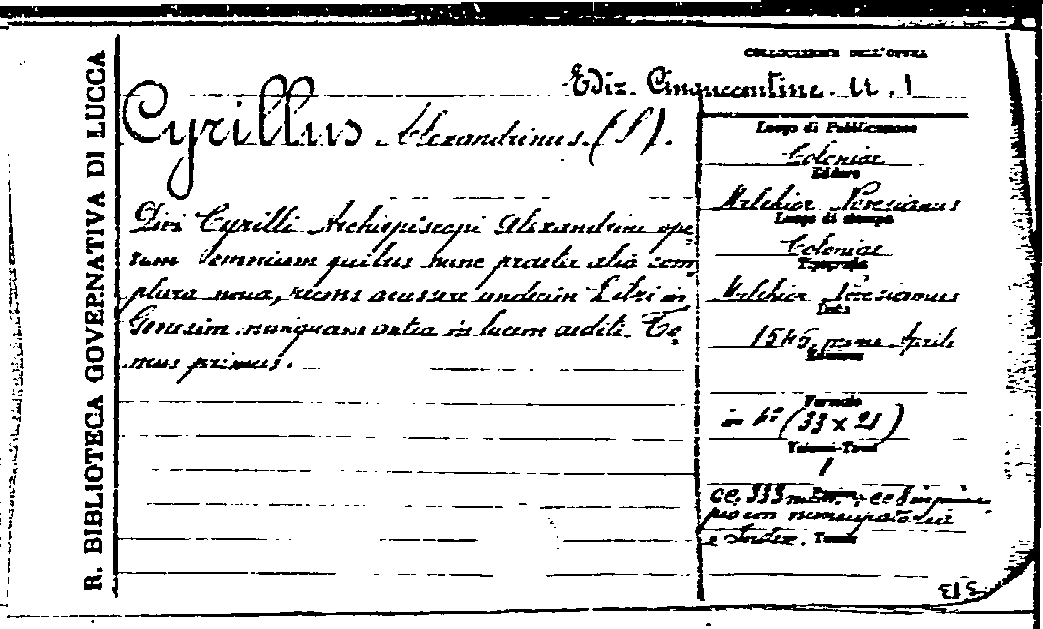 R. BIBLIOTECA GOVERNATIVA DI LUCCA
COLLOCAZIONE DELL'OPERA
Ediz. Cinquecentine. n. 1
Cyrillus Alexandrinus. (S).
Divi Cyrilli Archiepiscopi Alexandrini ope-
rum omnium quibus nunc praeter alia com-
plura nova, recens accessere undecim Libri in
Genesim nunquam antea in lucem aediti. To-
mus primus.
Luogo di Pubblicazione
Coloniae
Editore
Melchior Novesianus
Luogo di stampa
Coloniae
Tipografia
Melchior Novesianus
Data
1546, mense Aprili
Edizione
Formato
in f.º (33 x 21)
Volumi-Tomi
1
cc. 333 num.
con nuncupatoria
e Index.
Tavole
313